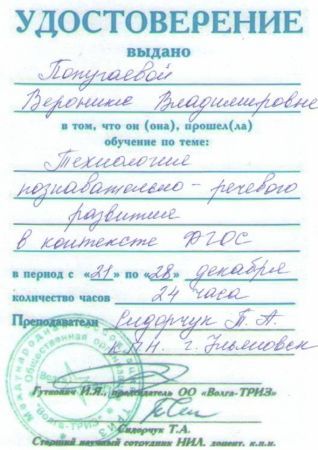 УДОСТОВЕРЕНИЕ
выдано
Попугаевой
Веронике Владимировне
в том, что он (она), прошел(ла)
обучение по теме:
Технология
познавательно - речевого
развития
в контексте ФГОС
в период с «21» по «28» декабря
количество часов 24 часа
Преподаватели Сидорчук Т. А.
к.п.н. г. Ульяновск
Гуткович И.Я., председатель ОО «Волга-ТРИЗ»
"Волга-ТРИЗ"
Сидорчук Т.А.
Старший научный сотрудник НИЛ, доцент, к.п.н.